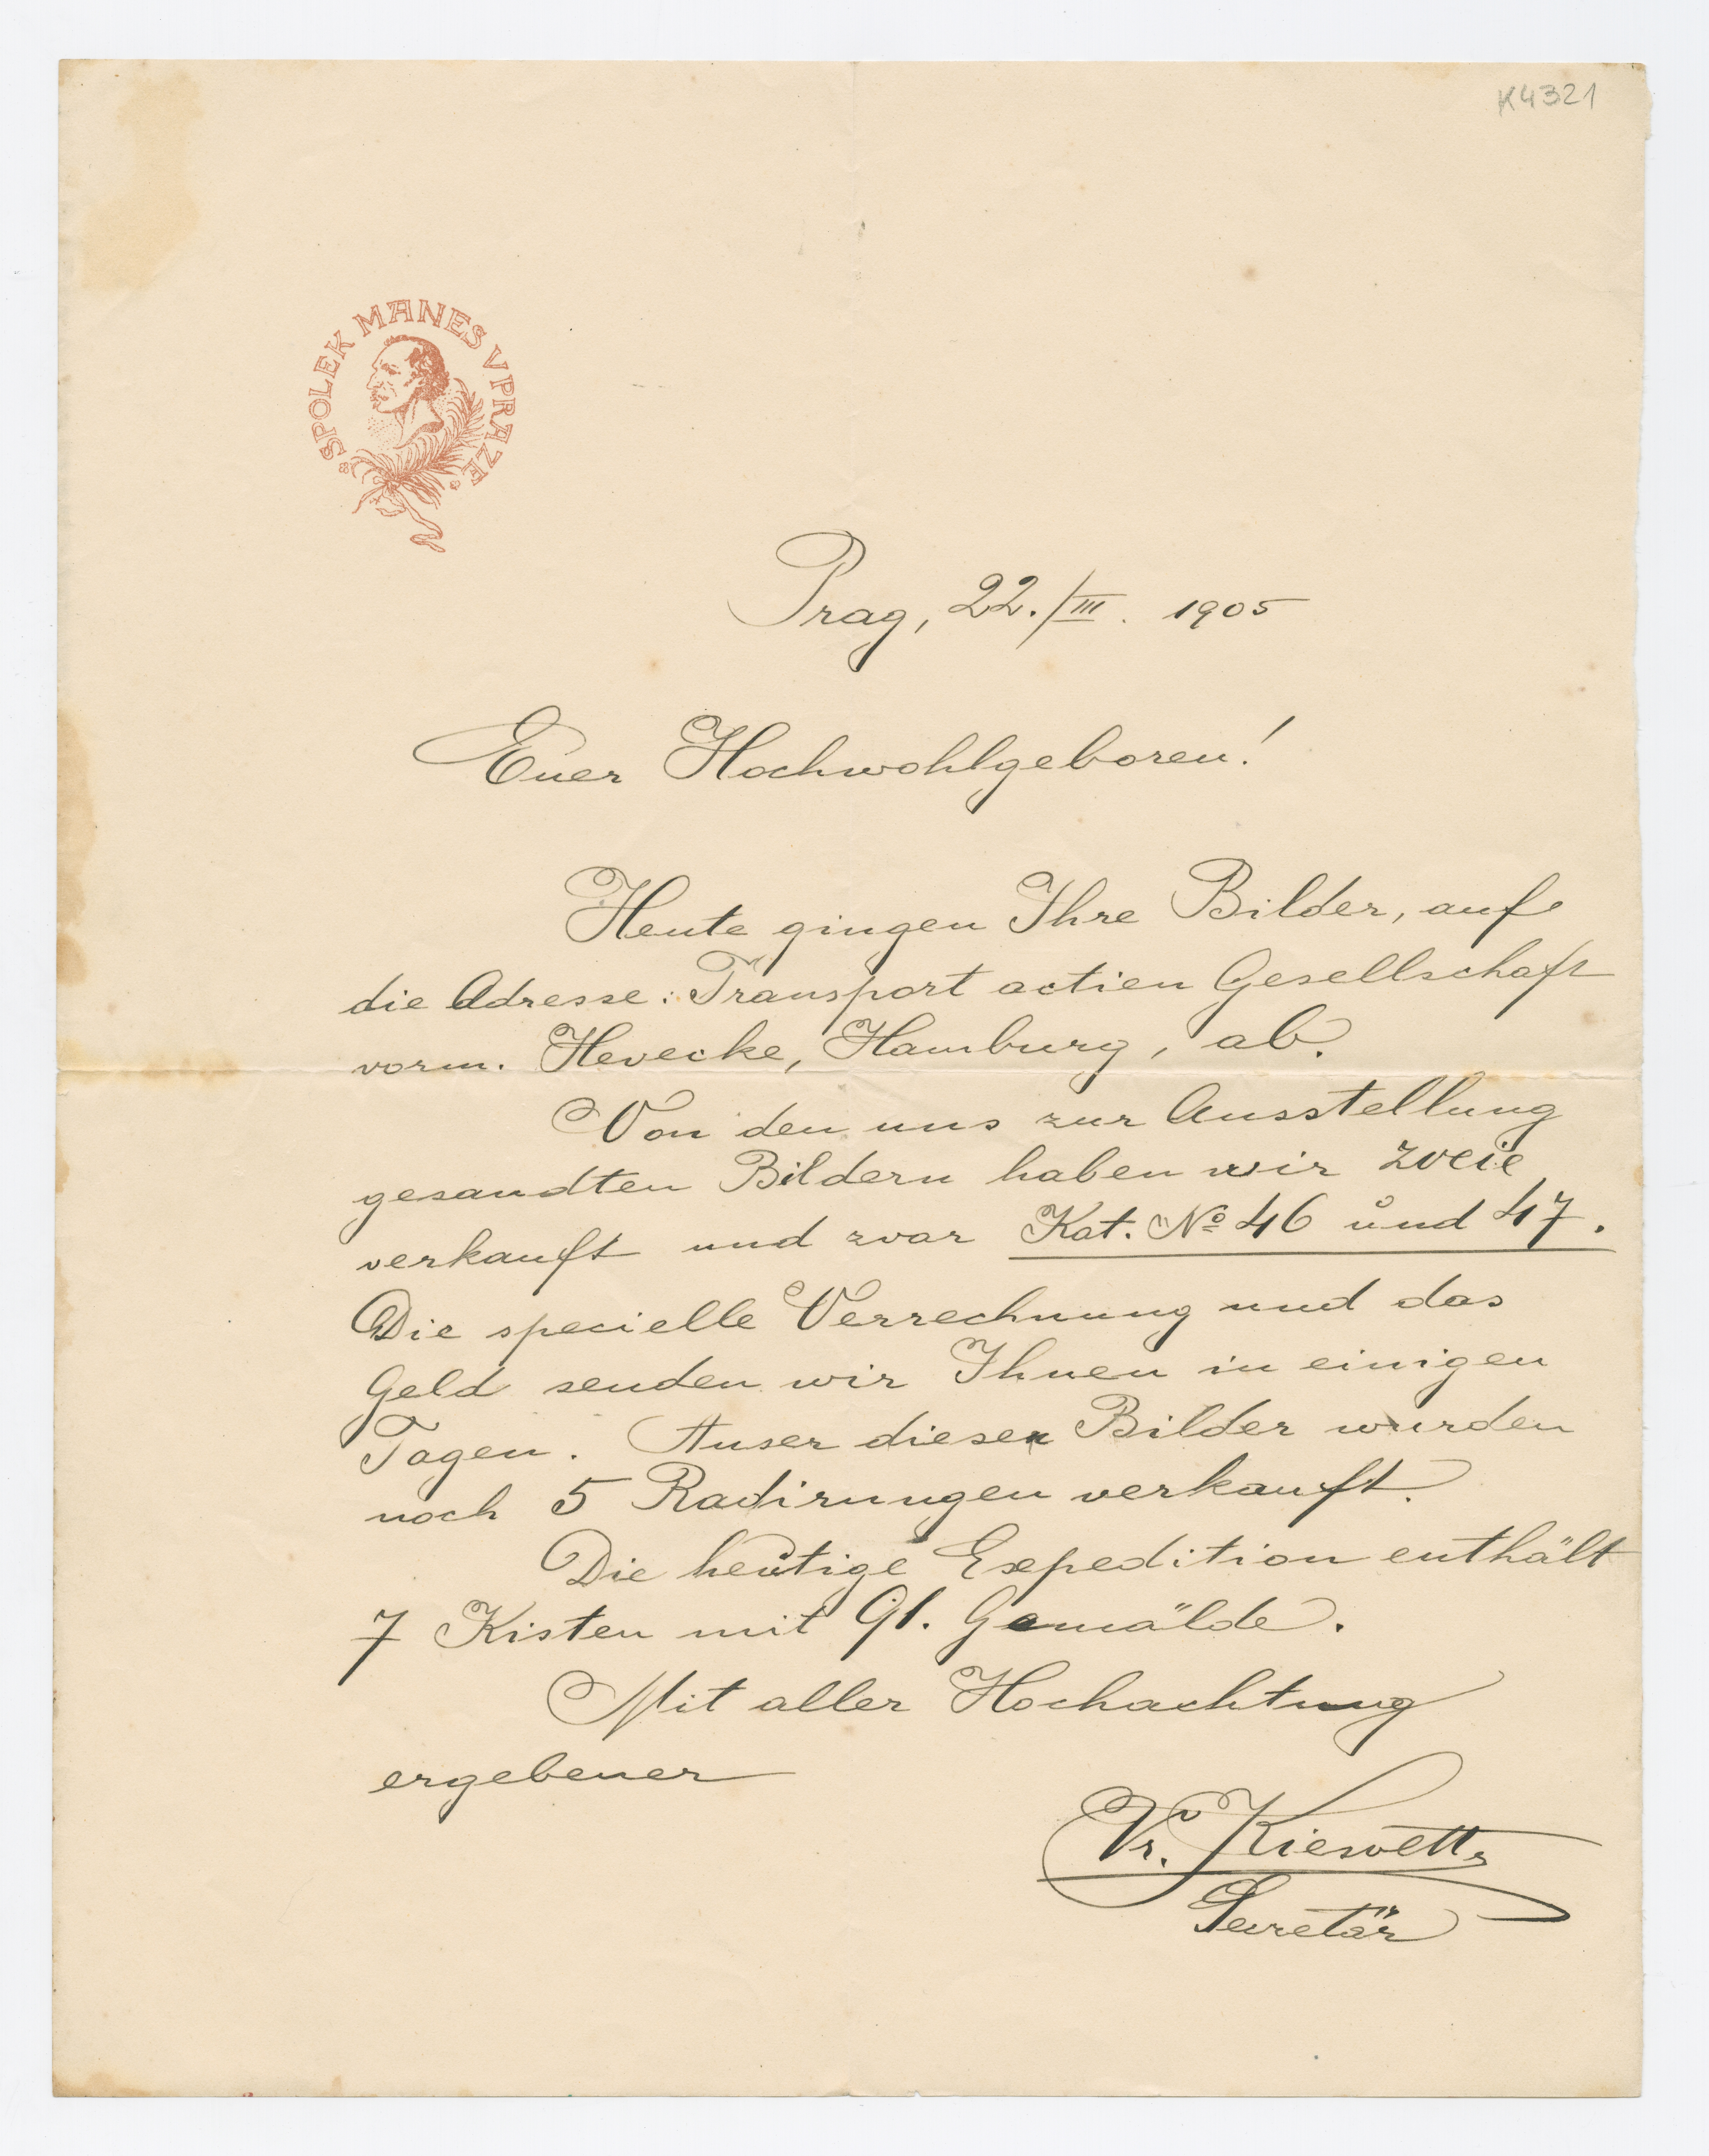 K4321
SPOLEK MANES V PRAZE
Prag, 22./III. 1905
Euer Hochwohlgeboren!
Heute gingen Ihre Bilder, auf
die Adresse: Transport actien Gesellschaft
vorm. Hevecke, Hamburg, ab.
Von den uns zur Ausstellung
gesandten Bildern haben wir zweie
verkauft und zwar Kat. No 46 und 47.
Die specielle Verrechnung und das
Geld senden wir Ihnen in einigen
Tagen. Auser diesen Bilder wurden
noch 5 Radirungen verkauft.
Die heutige Expedition enthält
7 Kisten mit 91. Gemälde.
Mit aller Hochachtung
ergebener
Kiesvetter
Secretär